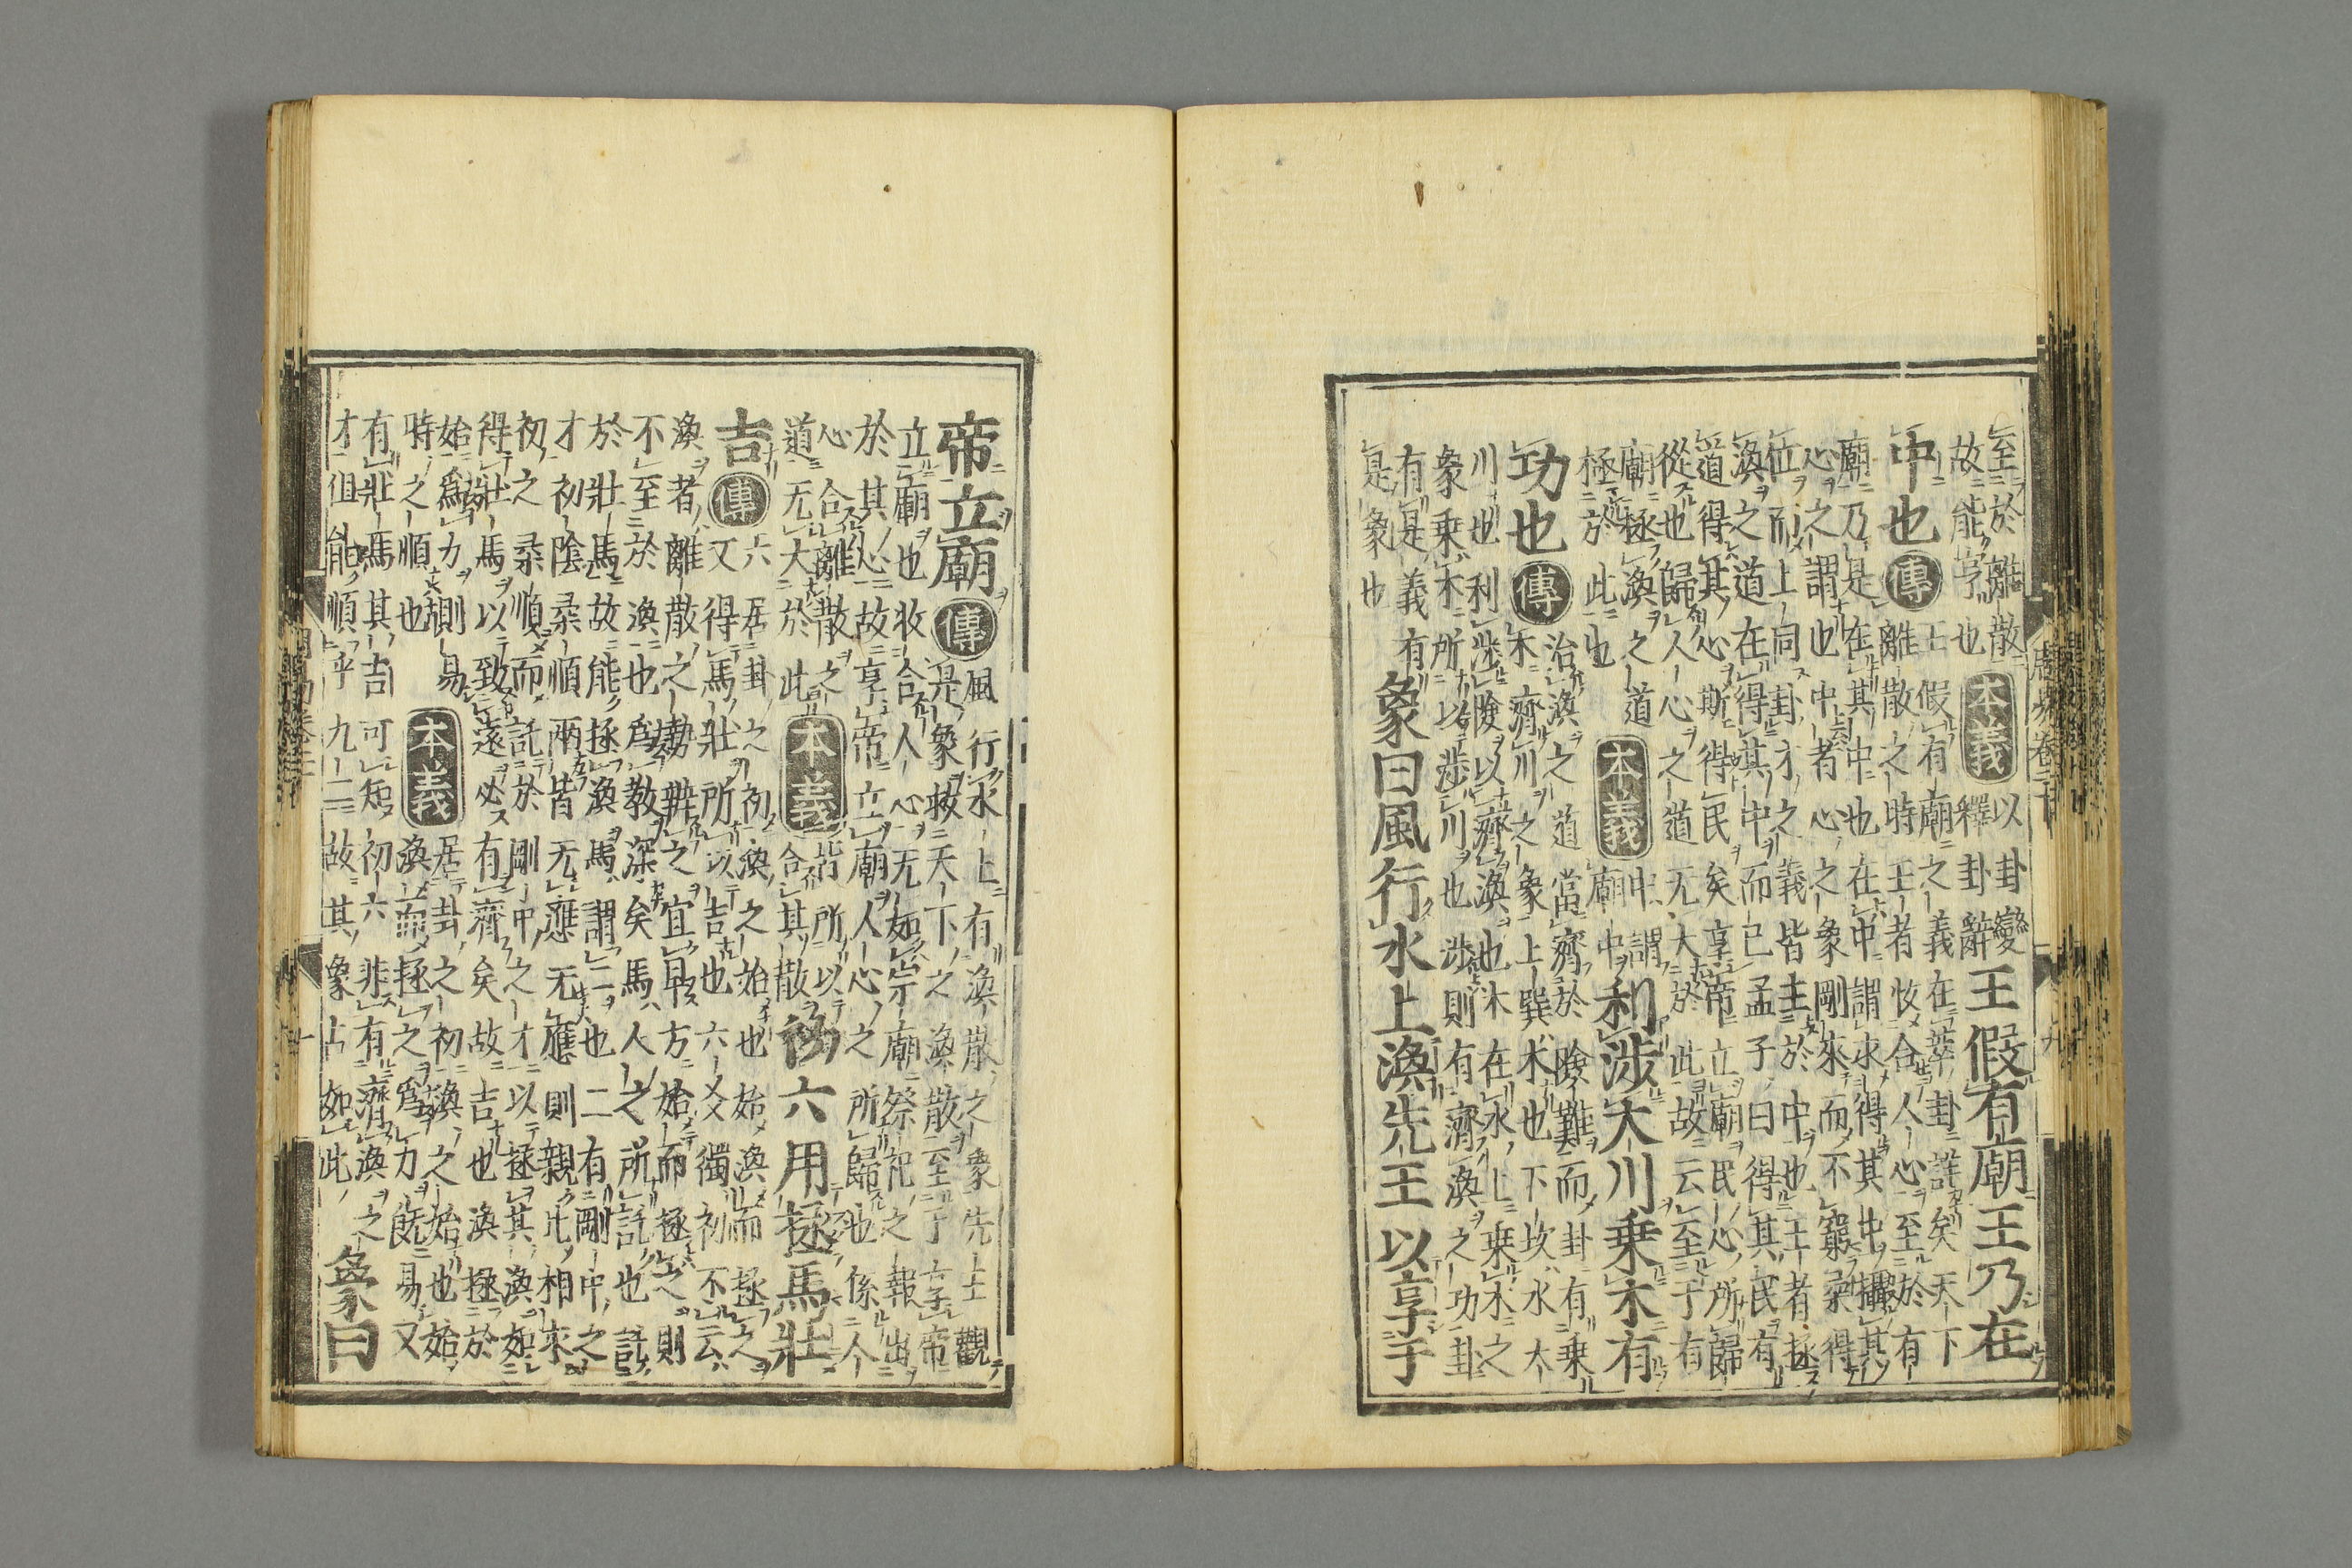 周易卷二十 九
至於離散
故能亨也
本義
以卦變
釋卦辭
王假有廟王乃在
中也
傳
王假有廟之義在萃卦詳矣天下
離散之時王者收合人心至於有
廟乃是在其中也在中謂求得其中攝其
心之謂也中者心之象剛來而不窮柔得
位而上同卦才之義皆主於中也王者拯
渙之道在得其中而已孟子曰得其民有
道得其心斯得民矣享帝立廟民心所歸
從也歸人心之道无大於此故云至于有
廟拯渙之道
極於此也
本義
中謂
廟中
利渉大川乗木有
功也
傳
治渙之道當濟於險難而卦有乗
木濟川之象上巽木也下坎水大
川也利渉險以濟渙也木在水上乗木之
象乗木所以渉川也渉則有濟渙之功卦
有是義有
是象也
象曰風行水上渙先王以享于
帝立廟
傳
風行水上有渙散之象先王觀
是象救天下之渙散至于享帝
立廟也收合人心无如宗廟祭祀之報出
於其心故享帝立廟人心之所歸也係人
心合離散之
道无大於此
本義
皆所以
合其散
初六用拯馬壯
吉
傳
六居卦之初渙之始也始渙而拯之
又得馬壯所以吉也六爻獨初不云
渙者離散之勢辨之宜早方始而拯之則
不至於渙也爲教深矣馬人之所託也託
於壯馬故能拯渙馬謂二也二有剛中之
才初陰柔順兩皆无應无應則親比相求
初之柔順而託於剛中之才以拯其渙如
得壯馬以致遠必有濟矣故吉也渙拯於
始爲力則易
時之順也
本義
居卦之初渙之始也始
渙而拯之爲力既易又
有壯馬其吉可知初六非有濟渙之
才但能順乎九二故其象占如此
象曰